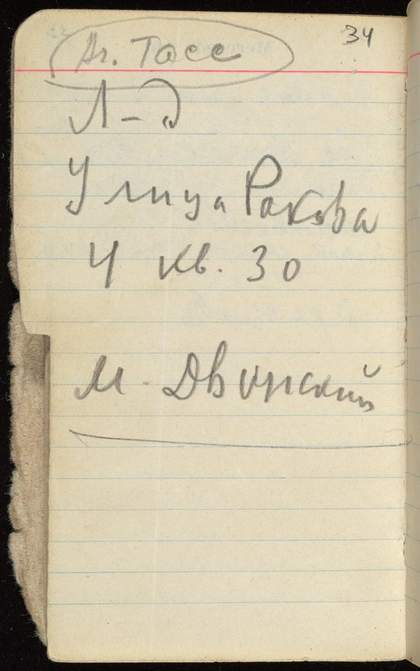 34
Аг. Тасс
Л-д
Улица Ракова
4 кв. 30
М. Дворский